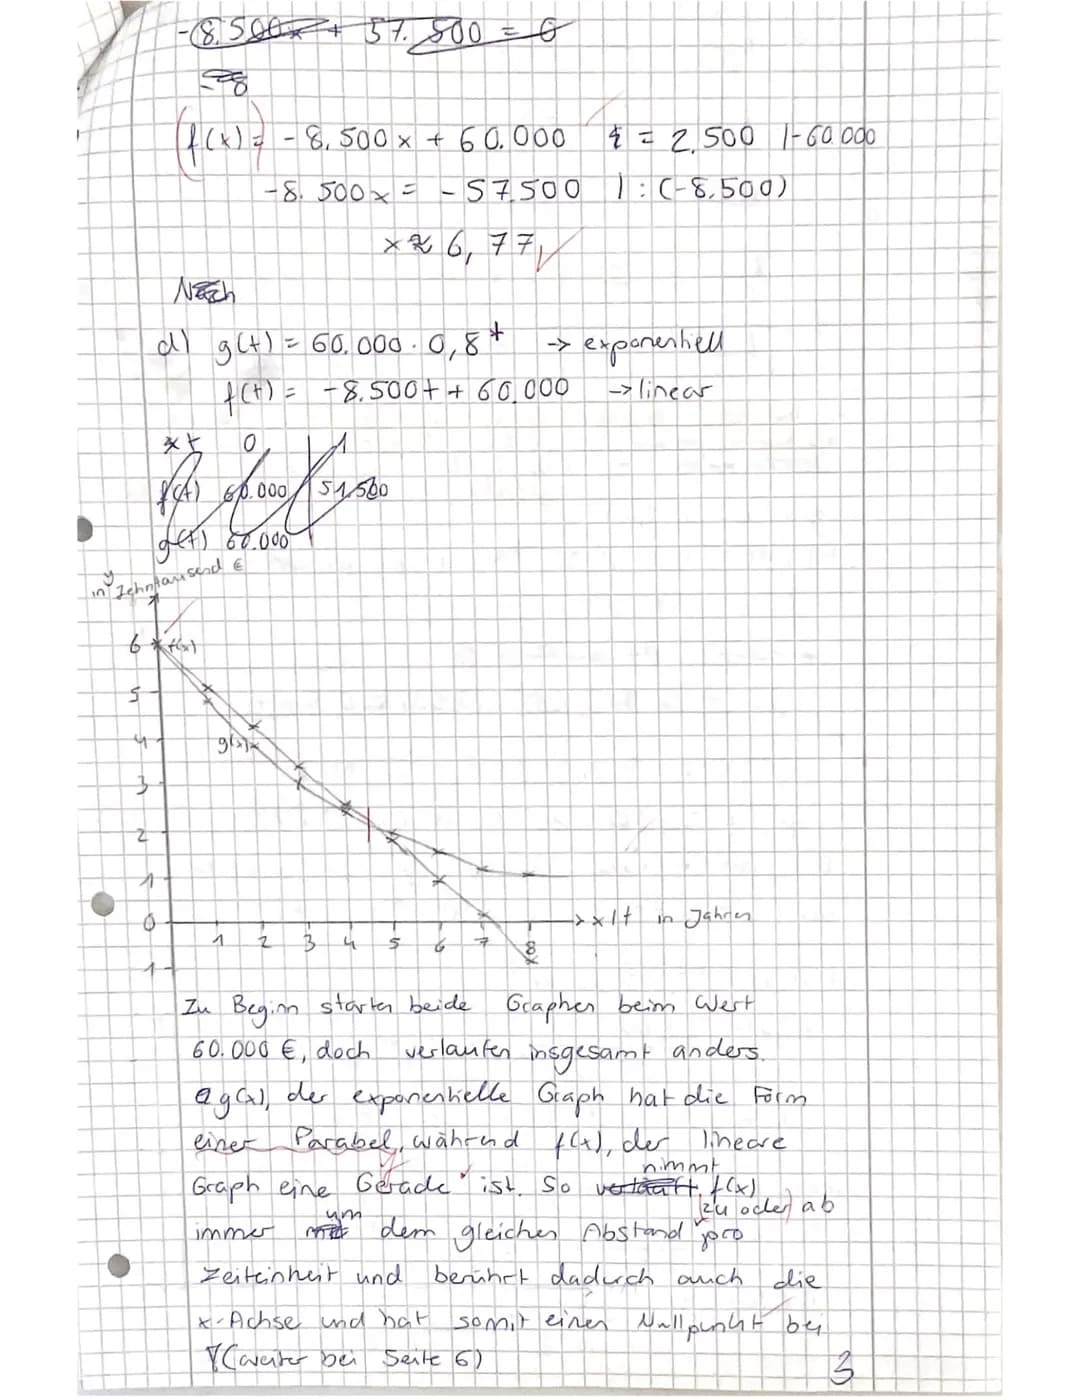 -8.500x + 57.500 = 0
-8
(f(x) =) -8.500x + 60.000 = 2.500 |-60.000
-8.500x = -57.500 | : (-8.500)
x ≈ 6,77 ✓
Nach
d) g(t) = 60.000 · 0,8^t -> exponentiell
f(t) = -8.500t + 60.000 -> linear
x t 0 1
f(t) 60.000 51.500
g(t) 60.000
y
in Zehntausend €
6 f(x)
5
4 g(x)
3
2
1
0 -> x/t in Jahren
1 2 3 4 5 6 7 8
-1
Zu Beginn starten beide Graphen beim Wert
60.000 €, doch verlaufen insgesamt anders.
g(x), der exponentielle Graph hat die Form
einer Parabel, während f(x), der lineare
Graph eine Gerade ist. So verläuft nimmt f(x)
immer um dem gleichen Abstand zu oder ab pro
Zeiteinheit und berührt dadurch auch die
x-Achse und hat somit einen Nullpunkt bei
(weiter bei Seite 6)
3